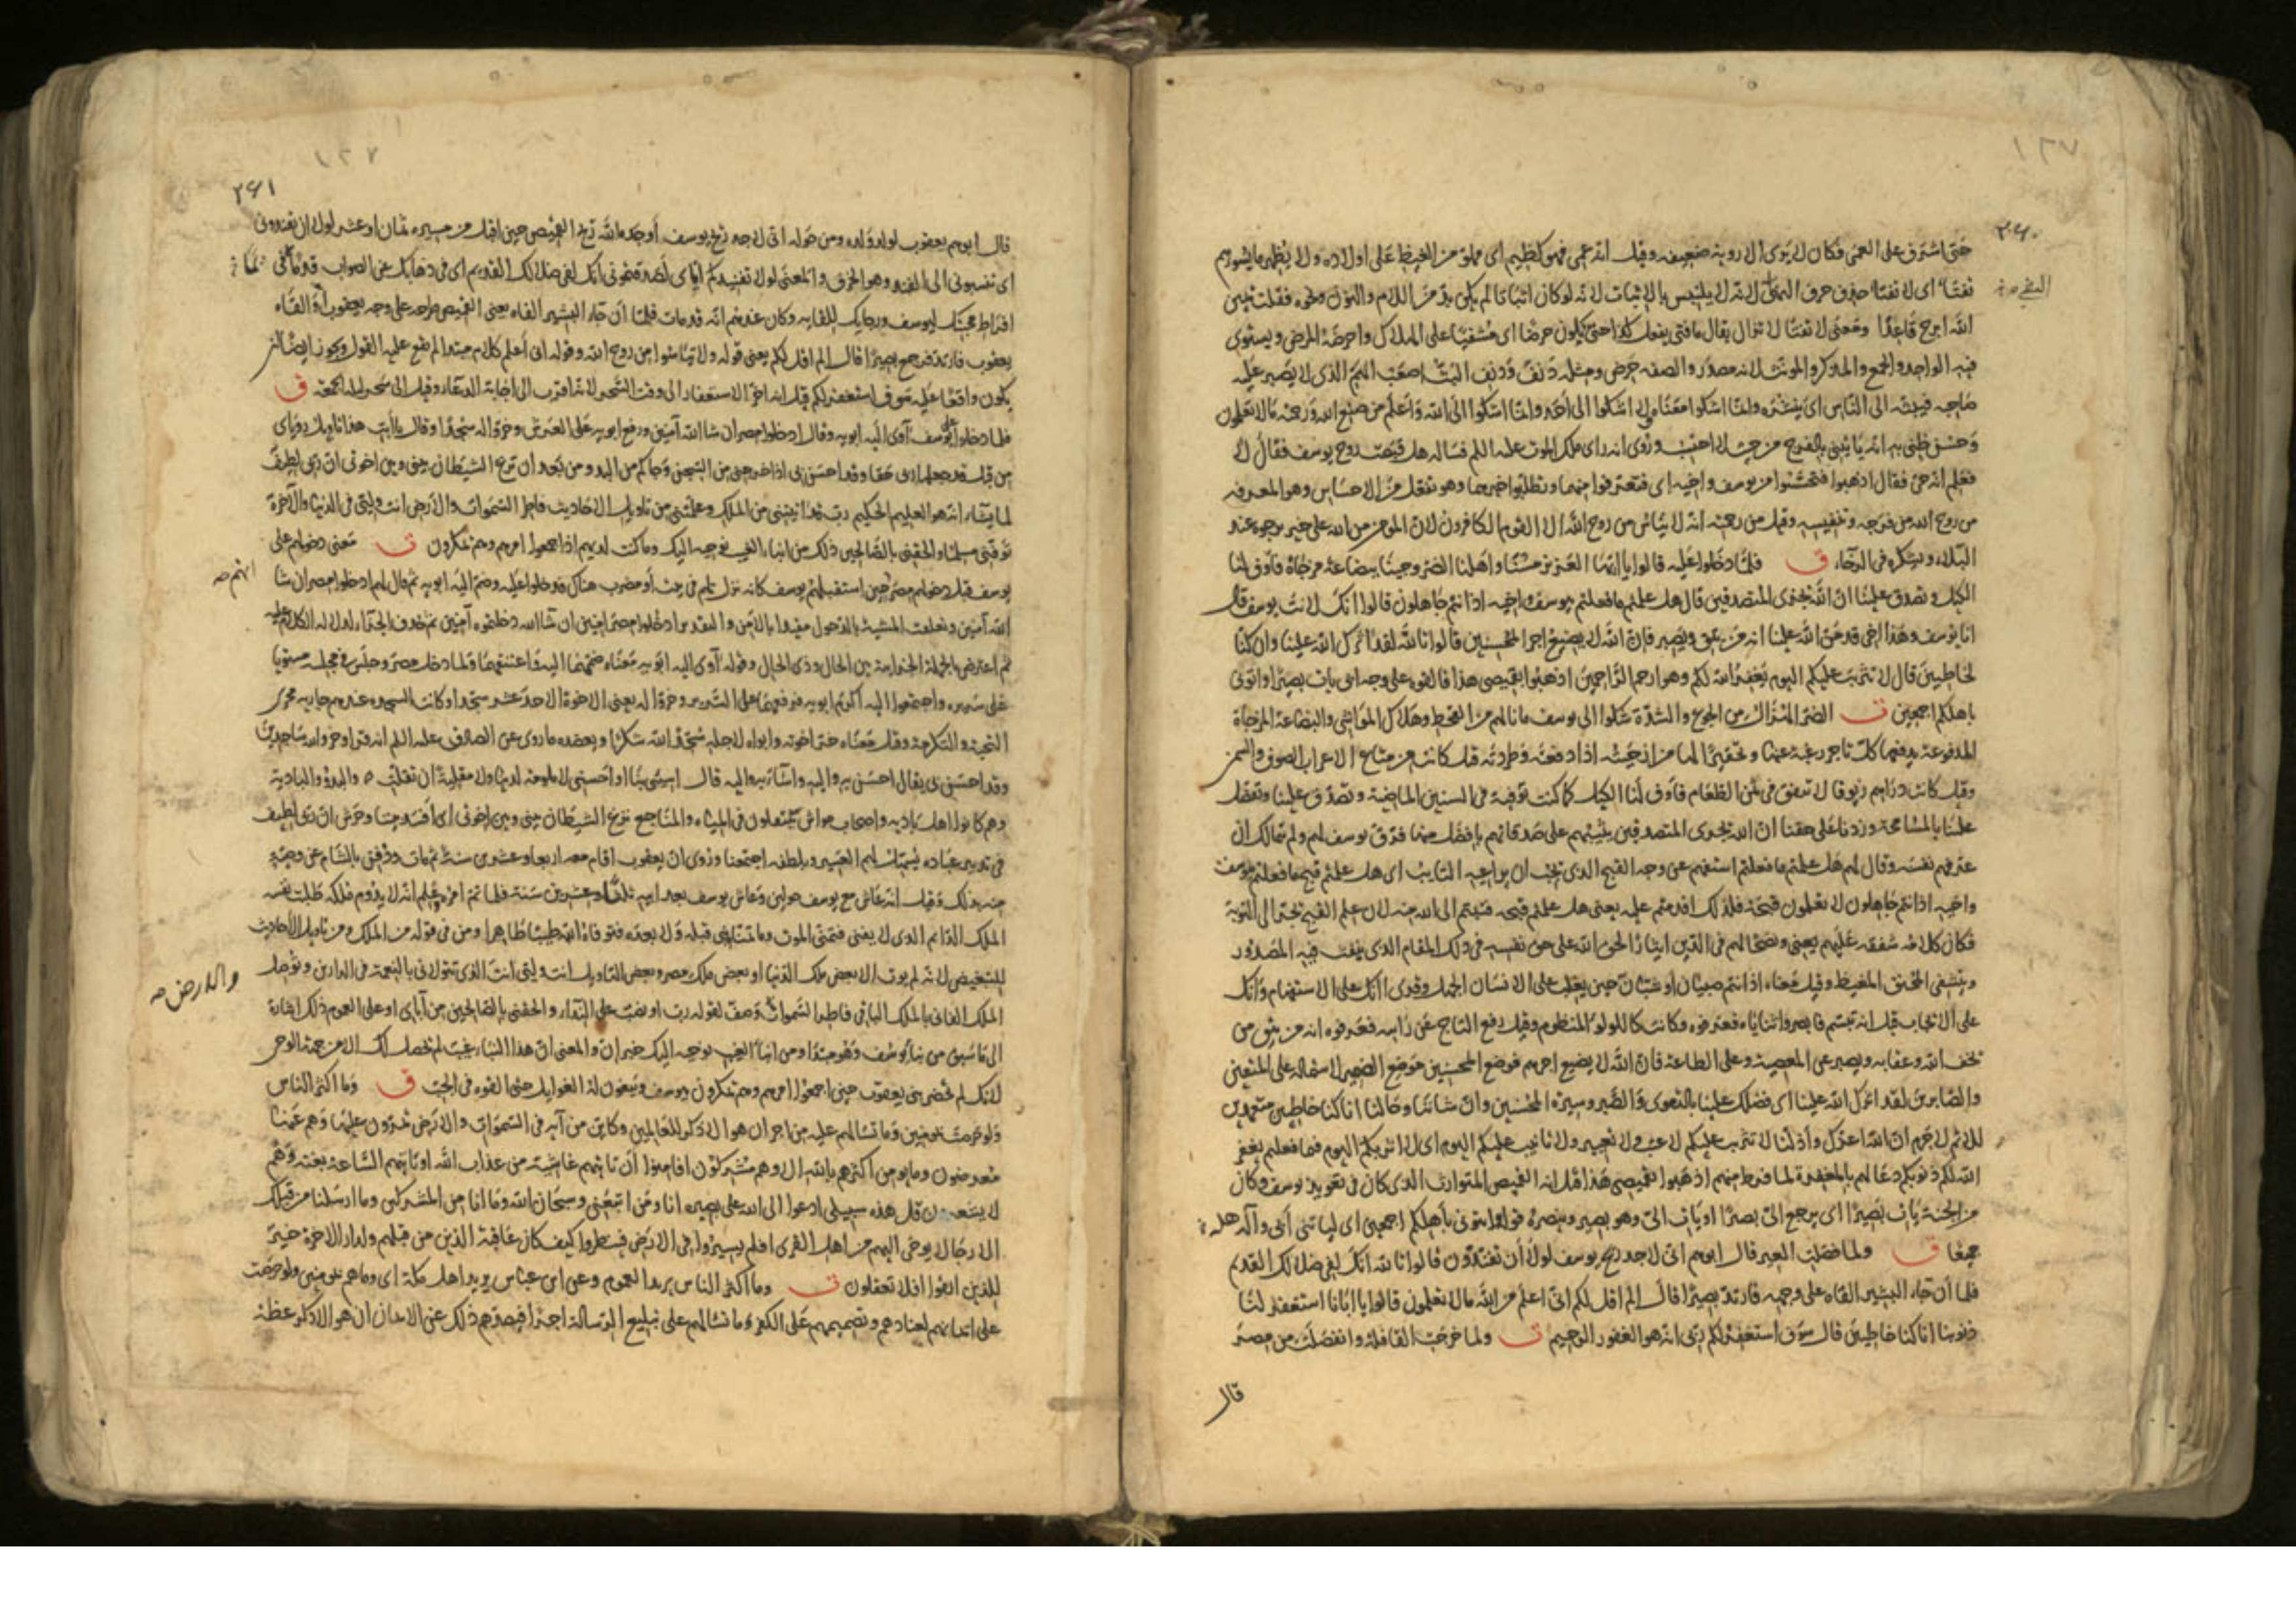 ١٢٧
٢٦٠
حتى اشرف على العمى فكان لا يرى الا روية ضعيفه وقيل انه عمى فهو كظيم اى مملو من الغيظ على اولاده ولا يظهر ما يسؤهم
تفتا اى لا تفتا حذف حرف النفى لانه لا يلتبس بالاثبات لانه لو كان اثباتا لم يكن بد من اللام والنون ونحوه فقلت يمين
الله ابرح قاعدا ومعنى لا تفتا لا تزال يقال ما فتى يفعل كذا حتى تكون حرضا اى مشفيا على الهلاك واحرضه المرض ويستوى
فيه الواحد والجمع والمذكر والمونث لانه مصدر والصفه حرض ومثله دنف ودنف البث اصعب الهم الذى لا يصبر عليه
صاحبه فيبثه الى الناس اى ينشره وانما اشكوا معناه لا اشكوا الى احد وانما اشكوا الى الله واعلم من صنع الله ورحمته ما لا تعلمون
وحسن ظنى به انه ياتينى بالفرج من حيث لا احتسب وروى انه راى ملك الموت عليه السلم فساله هل قبضت روح يوسف فقال لا
فعلم انه حى فقال اذهبوا فتحسسوا من يوسف واخيه اى فتعرفوا منهما وتطلبوا خبرهما وهو تفعل من الاحساس وهو المعرفه
من روح الله من فرجه وتنفيسه وقيل من رحمته انه لا يياس من روح الله الا القوم الكافرون لان المومن من الله على خير يرجوه عند
البلاء ويشكره فى الرخاء ق فلما دخلوا عليه قالوا يا ايها العزيز مسنا واهلنا الضر وجئنا ببضاعة مزجاة فاوف لنا
الكيل وتصدق علينا ان الله يجزى المتصدقين قال هل علمتم ما فعلتم بيوسف واخيه اذ انتم جاهلون قالوا انك لانت يوسف قال
انا يوسف وهذا اخى قد من الله علينا انه من يتق ويصبر فان الله لا يضيع اجر المحسنين قالوا تالله لقد اثرك الله علينا وان كنا
لخاطئين قال لا تثريب عليكم اليوم يغفر الله لكم وهو ارحم الراحمين اذهبوا بقميصى هذا فالقوه على وجه ابى يات بصيرا واتونى
باهلكم اجمعين ت الضر الهزال من الجوع والشدة شكوا الى يوسف ما نالهم من القحط وهلاك المواشى والبضاعة المزجاة
المدفوعة يدفعها كل تاجر رغبة عنها وتحقيرا لها من ازجيته اذا دفعته وطردته قيل كانت من متاع الاعراب الصوف والسمن
وقيل كانت دراهم زيوفا لا تنفق فى ثمن الطعام فاوف لنا الكيل كما كنت توفيه فى السنين الماضية وتصدق علينا وتفضل
علينا بالمسامحة وزدنا على حقنا ان الله يجزى المتصدقين يثيبهم على صدقاتهم بافضل منها فرق يوسف لهم ولم يتمالك ان
عرفهم نفسه وقال لهم هل علمتم ما فعلتم استفهم عن وجه القبح الذى يجب ان يراعيه التايب اى هل علمتم قبح ما فعلتم بيوسف
واخيه اذ انتم جاهلون لا تعلمون قبحه فلذلك اقدمتم عليه يعنى هل علمتم قبحه فتبتم الى الله منه لان علم القبيح يجر الى التوبة
فكان كلامه شفقه عليهم يعنى ونصحا لهم فى الدين ايثارا لحق الله على حق نفسه فى ذلك المقام الذى ينفث فيه المصدور
ويتشفى المحنق المغيظ وقيل معناه اذ انتم صبيان او شبان حين يغلب على الانسان الجهل وقرى اانك على الاستفهام وانك
على الايجاب قيل انه تبسم فابصروا ثناياه فعرفوه وكانت كاللولو المنظوم وقيل رفع التاج عن راسه فعرفوه انه من يتق من
يخف الله وعقابه ويصبر عن المعصية وعلى الطاعة فان الله لا يضيع اجرهم فوضع المحسنين موضع الضمير لاشتماله على المتقين
والصابرين لقد اثرك الله علينا اى فضلك علينا بالتقوى والصبر وسيرة المحسنين وان شاننا وحالنا انا كنا خاطئين متعمدين
للاثم لا جرم ان الله اعزك واذلنا لا تثريب عليكم لا عتب ولا تعيير ولا تانيب عليكم اليوم اى لا اثربكم اليوم فيما فعلتم يغفر
الله لكم ذنوبكم دعا لهم بالمغفرة لما فرط منهم اذهبوا بقميصى هذا قيل انه القميص المتوارث الذى كان فى تعويذ يوسف وكان
من الجنة يات بصيرا اى يرجع الى بصيرا او يات الى وهو بصير وينصره قوله واتونى باهلكم اجمعين اى لياتنى ابى وآله
جميعا ق ولما فصلت العير قال ابوهم انى لاجد ريح يوسف لولا ان تفندون قالوا تالله انك لفى ضلالك القديم
فلما ان جاء البشير القاه على وجهه فارتد بصيرا قال الم اقل لكم انى اعلم من الله ما لا تعلمون قالوا يا ابانا استغفر لنا
ذنوبنا انا كنا خاطئين قال سوف استغفر لكم ربى انه هو الغفور الرحيم ت ولما خرجت القافلة وانفصلت من مصر
قال
١٢٧
٢٦١
قال ابوهم يعقوب لولد ولده ومن حوله انى لاجد ريح يوسف اوجده الله ريح القميص حين اقبل من مسيره ثمان او عشر لولا ان تفندونى
اى تنسبونى الى الفند وهو الخرف والمعنى لولا تفنيدكم اياى لصدقتمونى انك لفى ضلالك القديم اى فى ذهابك عن الصواب قدما فى
افراط محبتك ليوسف ورجايك للقايه وكان عندهم انه قد مات فلما ان جاء البشير القاه يعنى القميص طرحه على وجه يعقوب او القاه
يعقوب فارتد فرجع بصيرا قال الم اقل لكم يعنى قوله ولا تياسوا من روح الله وقوله انى اعلم كلام مبتدا لم يقع عليه القول ويجوز ايضا ان
يكون واقعا عليه سوف استغفر لكم قيل انه اخر الاستغفار الى وقت السحر لانه اقرب الى اجابة الدعاء وقيل الى سحر ليله الجمعة ق
فلما دخلوا على يوسف آوى اليه ابويه وقال ادخلوا مصر ان شا الله آمنين ورفع ابويه على العرش وخروا له سجدا وقال يا ابت هذا تاويل روياى
من قبل قد جعلها ربى حقا وقد احسن بى اذ اخرجنى من السجن وجا بكم من البدو من بعد ان نزغ الشيطان بينى وبين اخوتى ان ربى لطيف
لما يشاء انه هو العليم الحكيم رب قد اتيتنى من الملك وعلمتنى من تاويل الاحاديث فاطر السموات والارض انت وليى فى الدنيا والآخرة
توفنى مسلما والحقنى بالصالحين ذلك من انباء الغيب نوحيه اليك وما كنت لديهم اذ اجمعوا امرهم وهم يمكرون ت معنى دخولهم على
يوسف قبل دخولهم مصر حين استقبلهم يوسف كانه نزل بهم فى بيت او مضرب هناك فدخلوا عليه وضم اليه ابويه ثم قال لهم ادخلوا مصر ان شا
الله آمنين وتعلقت المشيئة بالدخول مقيدا بالامن والتقدير ادخلوا مصر امنين ان شا الله دخلتموه آمنين ثم حذف الجزاء لدلاله الكلام عليه
ثم اعترض بالجملة الجزاءيه بين الحال وذى الحال وقوله آوى اليه ابويه معناه ضمهما اليه واعتنقهما ولما دخل مصر وجلس فى مجلسه مستويا
على سريره واجتمعوا اليه اكرم ابويه فرفعهما على السرير وخروا له يعنى الاخوة الاحد عشر سجدا وكانت السجده عندهم جاريه مجرى
التحية والتكرمة وقيل معناه خر اخوته وابواه لاجله سجدا لله شكرا ويعضده ما روى عن الصادق عليه السلم انه قرا وخروا لله ساجدين
وقد احسن بى يقال احسن به واليه واساء به واليه قال اسيئى بنا او احسنى لا ملومة لدينا ولا مقلية ان تقلت ٥ والبدو والبادية
وهم كانوا اهل بادية واصحاب مواش ينتقلون فى المياه والمناجع نزغ الشيطان بينى وبين اخوتى اى افسد بيننا وحرش ان ربى لطيف
فى تدبير عباده يسهل لهم العسير وبلطفه اجتمعنا وروى ان يعقوب اقام معه اربعا وعشرين سنة ثم مات ودفن بالشام عن وصية
منه بذلك وقيل انه عاش مع يوسف حولين وعاش يوسف بعد ابيه ثلثا وعشرين سنة فلما تم امره وعلم انه لا يدوم فلكه طلبت نفسه
الملك الدائم الذى لا يفنى فتمنى الموت وما تمناه نبى قبله ولا بعده فتوفاه الله طيبا طاهرا ومن فى قوله من الملك ومن تاويل الاحاديث
للتبعيض لانه لم يوت الا بعض ملك الدنيا او بعض ملك مصر وبعض التاويل انت وليى انت الذى تتولانى بالنعمة فى الدارين وتوصل
الملك الفانى بالملك الباقى فاطر السموات وصف لقوله رب او نصب على النداء والحقنى بالصالحين من آباى او على العموم ذلك اشارة
والارض صح
الى ما سبق من نبا يوسف وهو مبتدا ومن انباء الغيب نوحيه اليك خبر ان والمعنى ان هذا النبا غيب لم يحصل لك الا من جهة الوحى
لانك لم تحضر بنى يعقوب حين اجمعوا امرهم وهم يمكرون بيوسف ويبغون له الغوايل حتى القوه فى الجب ق وما اكثر الناس
ولو حرصت بمومنين وما تسالهم عليه من اجر ان هو الا ذكر للعالمين وكاين من آية فى السموات والارض يمرون عليها وهم عنها
معرضون وما يومن اكثرهم بالله الا وهم مشركون افامنوا ان تاتيهم غاشية من عذاب الله او تاتيهم الساعة بغتة وهم
لا يشعرون قل هذه سبيلى ادعوا الى الله على بصيرة انا ومن اتبعنى وسبحان الله وما انا من المشركين وما ارسلنا من قبلك
الا رجالا يوحى اليهم من اهل القرى افلم يسيروا فى الارض فينظروا كيف كان عاقبة الذين من قبلهم ولدار الاخرة خير
للذين اتقوا افلا تعقلون ت وما اكثر الناس يريد العموم وعن ابن عباس يريد اهل مكة اى وما هم بمومنين ولو حرصت
على ايمانهم لعنادهم وتصميمهم على الكفر وما تسالهم على تبليغ الرسالة اجرا فيصدهم ذلك عن الايمان ان هو الا ذكر عظة